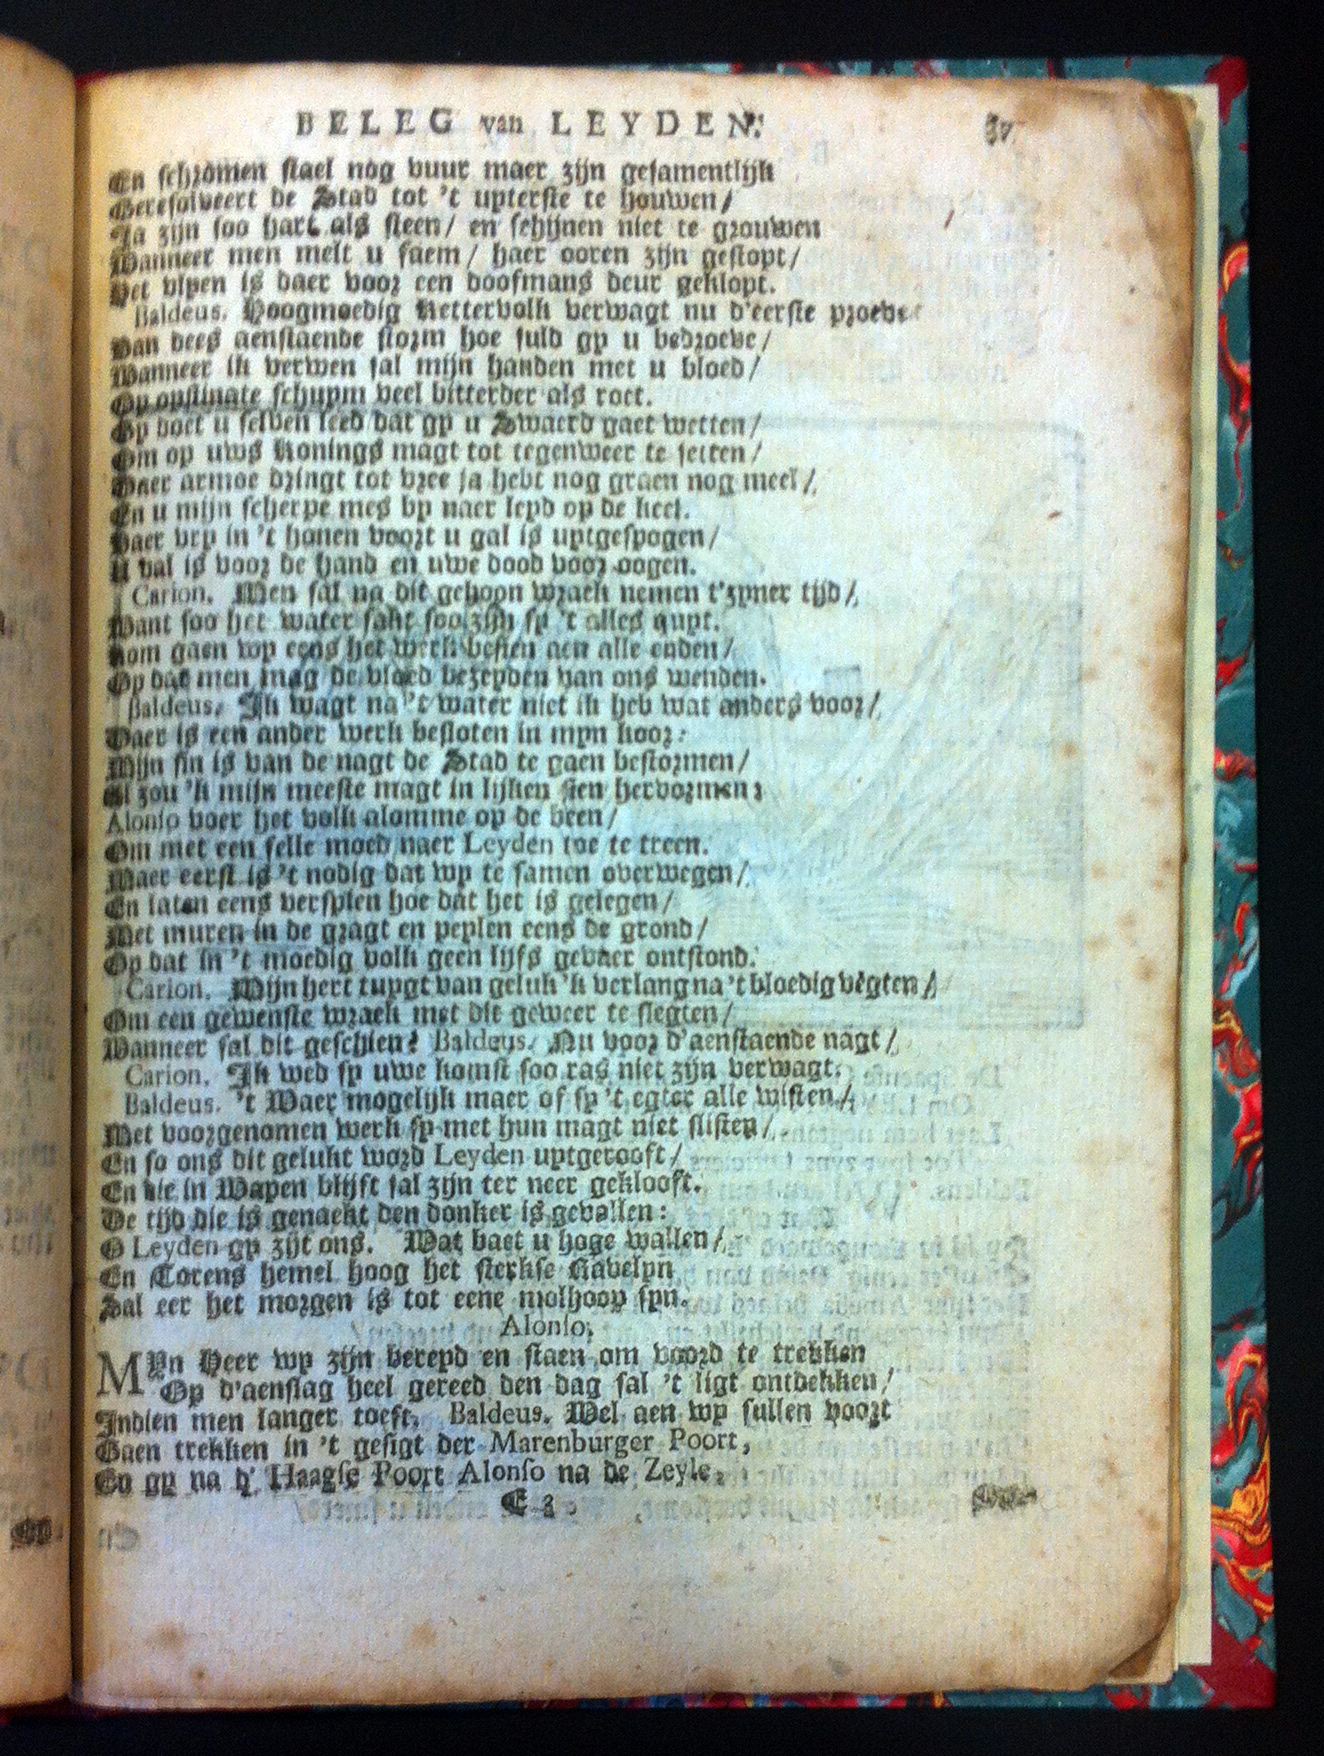 BELEG van LEYDEN. 37
En schromen stael nog vuur maer zijn gesamentlijk
Geresolveert de Stad tot 't uyterste te houwen/
Ja zijn soo hart als steen/ en schijnen niet te grouwen
Wanneer men melt u faem/ haer ooren zijn gestopt/
Het vlyen is daer voor een doofmans deur geklopt.
Baldeus. Hoogmoedig Kettervolk verwagt nu d'eerste proeve
Van dees aenstaende storm hoe suld gy u bedroeve/
Wanneer ik verwen sal mijn handen met u bloed/
Op opstinate schuym veel bitterder als roet.
Gy doet u selven leed dat gy u Swaerd gaet wetten/
Om op uws Konings magt tot tegenweer te setten/
Haer armoe dringt tot vree ja hebt nog graen nog meel/
En u mijn scherpe mes vy naer leyd op de keel.
Haer vry in 't honen voort u gal is uytgespogen/
U val is voor de hand en uwe dood voor oogen.
Carion. Men sal na dit gehoon wraek nemen t'zyner tijd/
Want soo het water sakt soo zijn sy 't alles quyt.
Kom gaen wy eens het werk besien aen alle enden/
Op dat men mag de vloed bezeyden van ons wenden.
Baldeus. Ik wagt na 't water niet ik heb wat anders voor/
Daer is een ander werk besloten in myn koor:
Mijn sin is van de nagt de Stad te gaen bestormen/
Al zou 'k mijn meeste magt in lijken sien hervormen;
Alonso voer het volk alomme op de been/
Om met een felle moed naer Leyden toe te treen.
Maer eerst is 't nodig dat wy te samen overwegen/
En laten eens verspien hoe dat het is gelegen/
Met muren in de gragt en peylen eens de grond/
Op dat in 't moedig volk geen lijfs gevaer ontstond.
Carion. Mijn hert tuygt van geluk 'k verlang na 't bloedig vegten/
Om een gewenste wraek met die geweer te slegten/
Wanneer sal dit geschien? Baldeus. Nu voor d'aenstaende nagt/
Carion. Ik wed sy uwe komst soo ras niet zijn verwagt.
Baldeus. 't Waer mogelijk maer of sy 't egter alle wisten/
Met voorgenomen werk sy met hun magt niet slisten/
En so ons dit gelukt word Leyden uytgerooft/
En die in Wapen blijft sal zijn ter neer geklooft.
De tijd die is genaekt den donker is gevallen:
O Leyden gy zijt ons. Wat baet u hoge wallen/
En Torens hemel hoog het sterkse Ravelyn
Sal eer het morgen is tot eene molhoop syn.
Alonso.
Myn Heer wy zijn bereyd en staen om voord te trekken
Op d'aenslag heel gereed den dag sal 't ligt ontdekken/
Indien men langer toeft. Baldeus. Wel aen wy sullen voort
Gaen trekken in 't gesigt der Marenburger Poort,
En gy na d' Haagse Poort Alonso na de Zeyle,
E 3